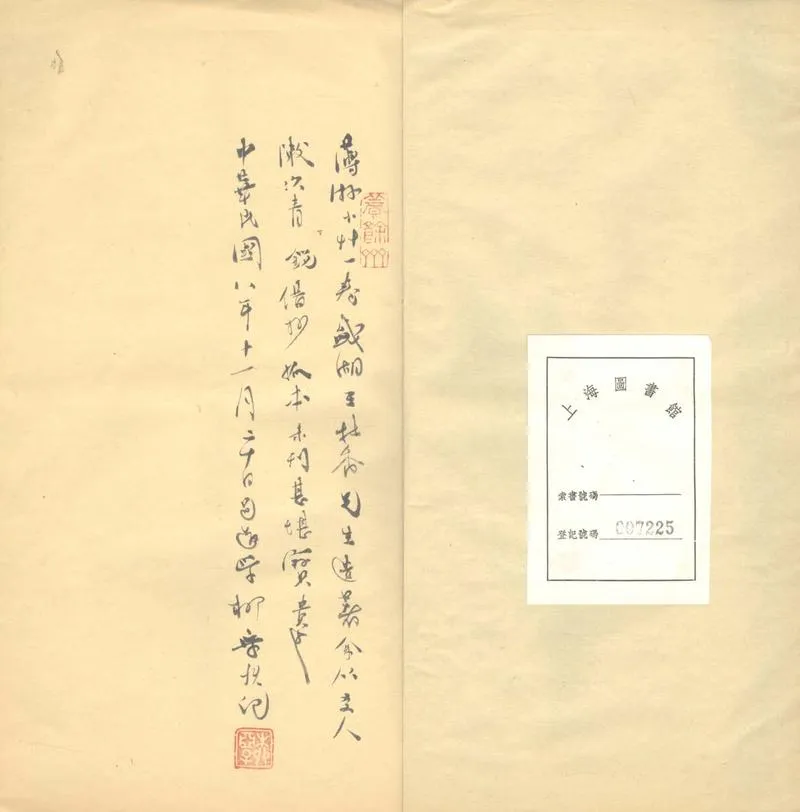 上海圖書館
索書號碼
登記號碼 007225
薄游小艸一卷盛湖王杜香先生遺著余从友人
陳次青 銳借抄孤本未刊甚堪寶貴也
中華民國八年十一月二十日邑後學柳弃疾記